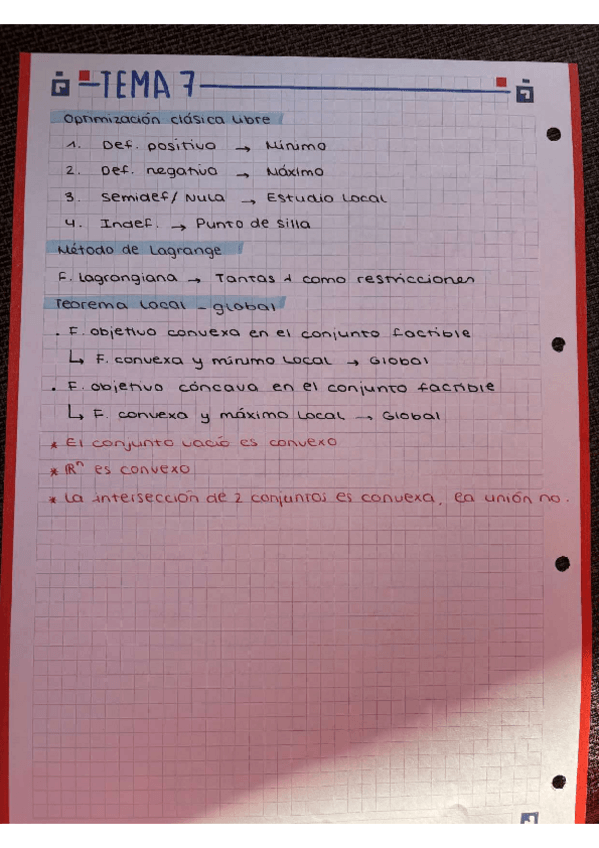 TEMA 7
Optimización clásica libre
1. Def. positivo → Mínimo
2. Def. negativo → Máximo
3. Semidef/Nula → Estudio Local
4. Indef. → Punto de silla
Método de Lagrange
F. Lagrangiana → Tantas λ como restricciones
Teorema Local - global
. F. objetivo convexa en el conjunto factible
↳ F. convexa y mínimo Local → Global
. F. objetivo cóncava en el conjunto factible
↳ F. convexa y máximo Local → Global
* El conjunto vacío es convexo
* ℝⁿ es convexo
* La intersección de 2 conjuntos es convexa, la unión no.